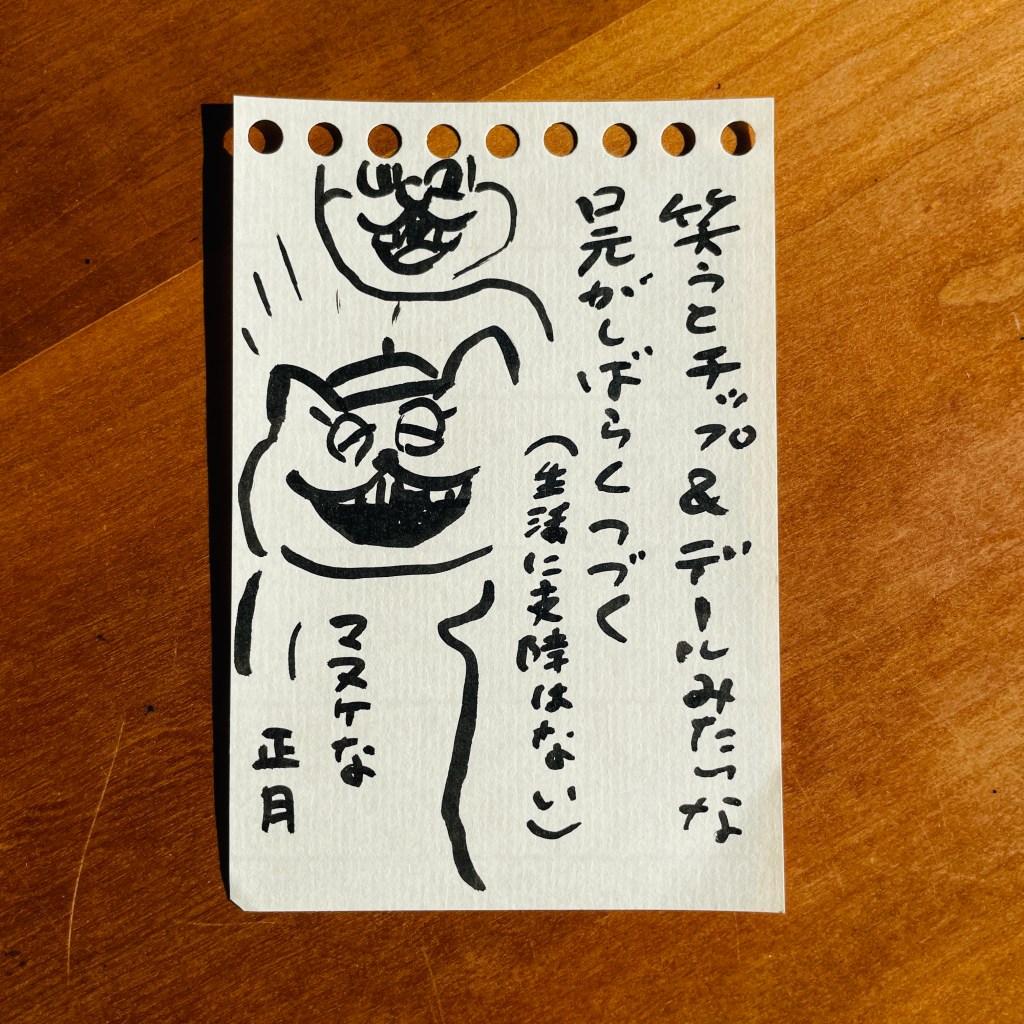 笑うとチップ&デールみたいな
口元がしばらくつづく
（生活に支障はない）
マヌケな
正月